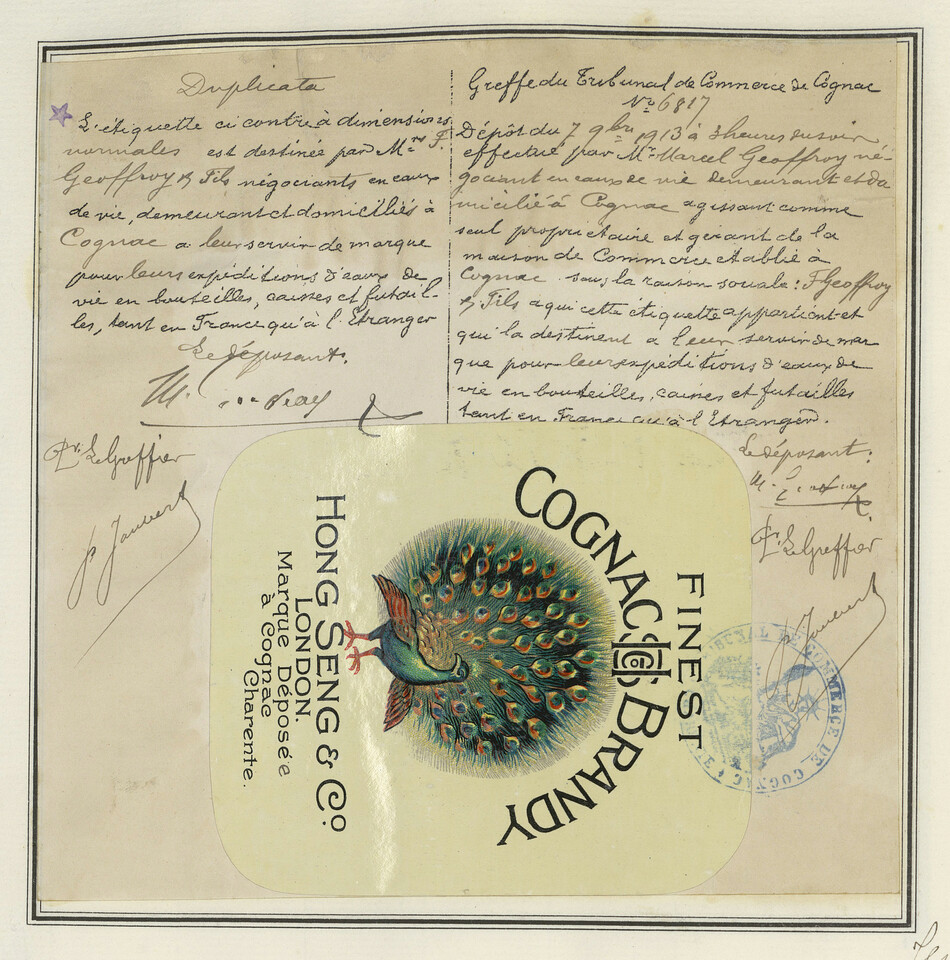 Duplicata
L'étiquette ci contre à dimensions
normales est destinée par Mrs F.
Geoffroy & Fils négociants en eaux
de vie, demeurant et domiciliés à
Cognac a leur servir de marque
pour leurs expéditions d'eaux de
vie en bouteilles, caisses et futail-
les, tant en France qu'à l'Etranger
Le déposant.
Pr. Le Greffier
Greffe du Tribunal de Commerce de Cognac
No 6817
Dépôt du 7 9bre 1913 à 3 heures du soir
effectué par Mr Marcel Geoffroy né-
gociant en eaux de vie demeurant et do
micilié à Cognac agissant comme
seul propriétaire et gérant de la
maison de Commerce établie à
Cognac sous la raison sociale: F Geoffroy
& Fils a qui cette étiquette appartient et
qui la destinent a leur servir de mar
que pour leurs expéditions d'eaux de
vie en bouteilles, caisses et futailles
tant en France qu'à l'Etranger.
Le déposant:
Pr. Le Greffier
p Jauvert
TRIBUNAL DE COMMERCE DE COGNAC
FINEST
COGNAC BRANDY
HONG SENG & Co
LONDON.
Marque Déposée
à Cognac
Charente.